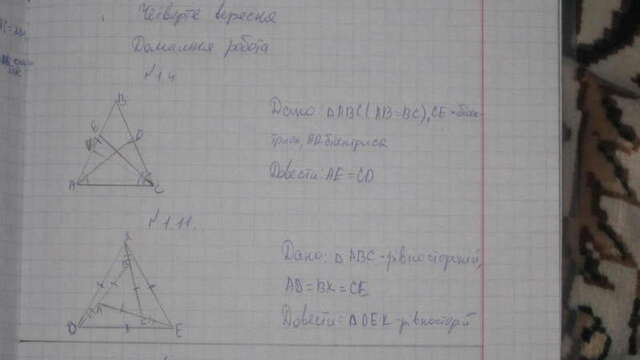 Четверте вересня
Домашня робота
№1.4
B
E
D
A
C
Дано: △ABC (AB=BC), CE - бісек-
триса, AD бісектриса
Довести: AE = CD
№1.11.
K
B
A
C
D
E
Дано: △ABC - рівносторонній,
AD = BK = CE
Довести: △DEK - рівносторонній